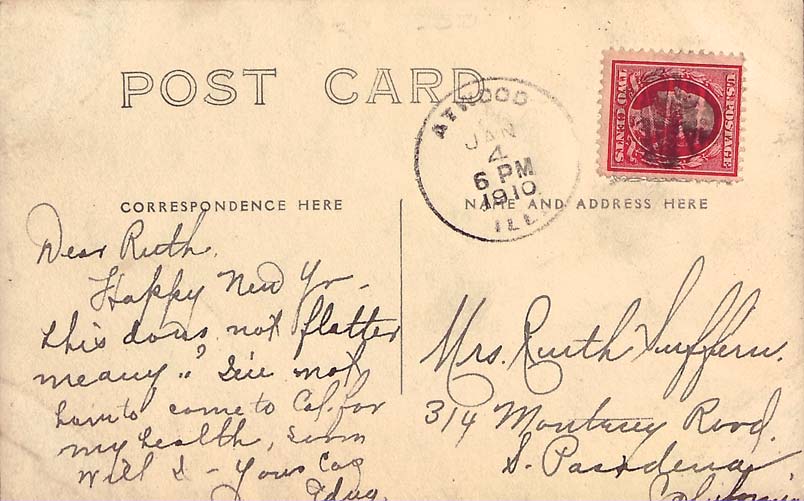 POST CARD
ATWOOD
JAN
4
6 PM
1910
ILL.
U.S. POSTAGE
TWO CENTS
CORRESPONDENCE HERE
NAME AND ADDRESS HERE
Dear Ruth,
Happy New Yr -
this does not flatter
me any
not
come to Cal. for
my health,
will I - Yours
Mrs. Ruth Suffern.
314 Monterey Road.
S. Pasadena